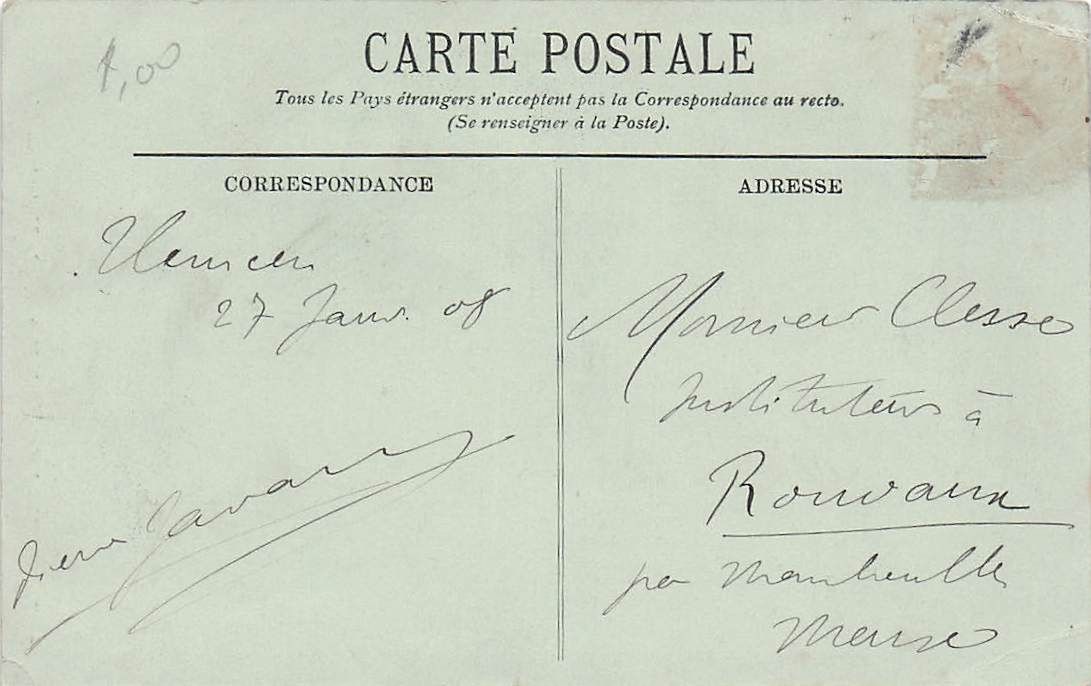 1,00
CARTE POSTALE
Tous les Pays étrangers n'acceptent pas la Correspondance au recto.
(Se renseigner à la Poste).
CORRESPONDANCE
ADRESSE
Tlemcen
27 Janv. 08
Pierre
Monsieur Clesse
Instituteur à
Rouvaux
par
Meuse